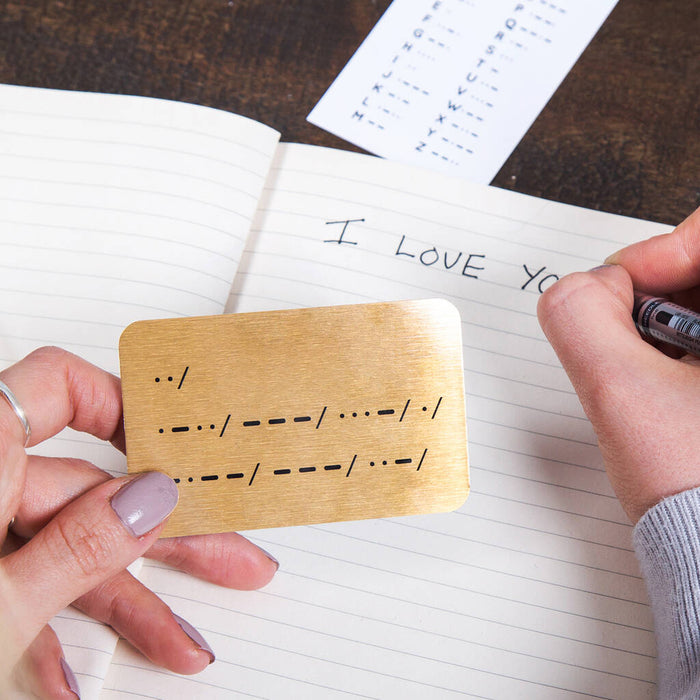 E
F
G
H
I
J
K
L
M
P
Q
R
S
T
U
V
W
X
Y
Z
I LOVE YO
··/
·–··/ –––/ ···–/ ·/
·––/ –––/ ··–/